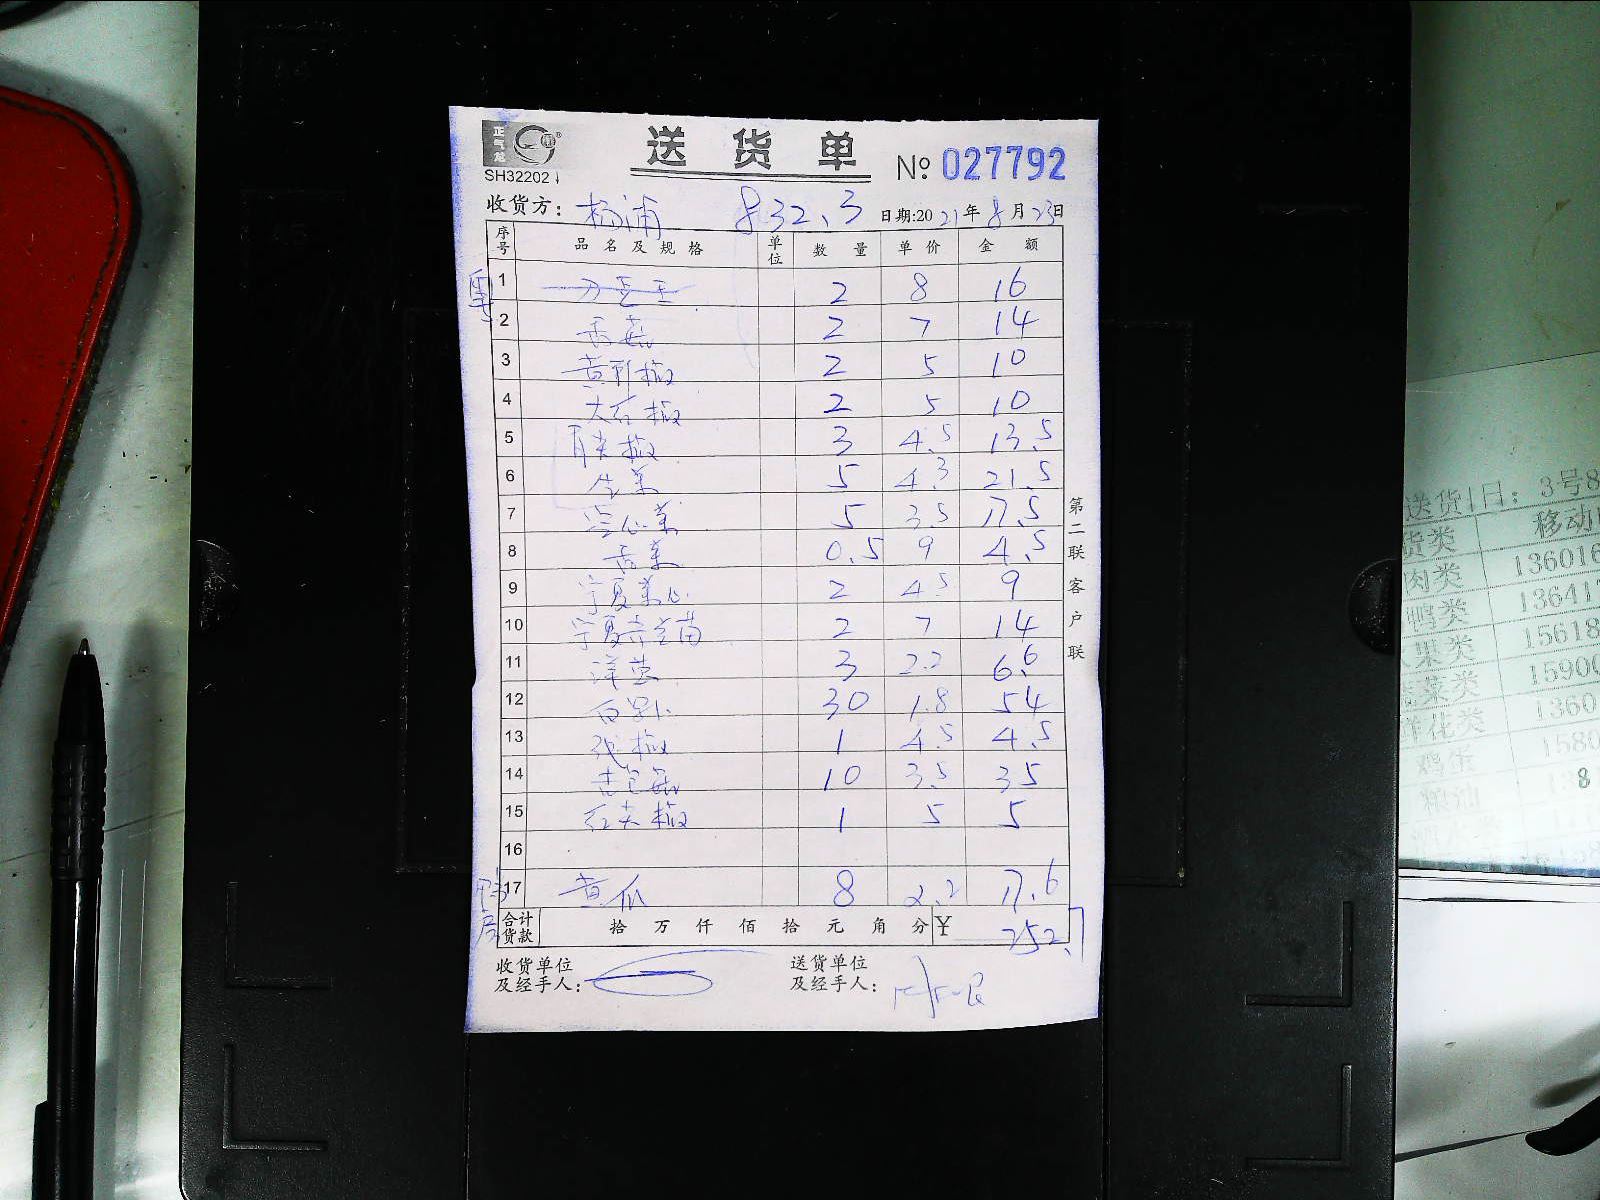 正气龙
SH32202
送货单
No 027792
收货方: 杨浦 832.3 日期:2021年8月23日
序号 品名及规格 单位 数量 单价 金额
1 2 8 16
2 香菇 2 7 14
3 黄彩椒 2 5 10
4 大石椒 2 5 10
5 青尖椒 3 4.5 13.5
6 生菜 5 4.3 21.5
7 空心菜 5 3.5 17.5
8 香菜 0.5 9 4.5
9 宁夏菜心 2 4.5 9
10 宁夏 苗 2 7 14
11 洋葱 3 2.2 6.6
12 30 1.8 54
13 椒 1 4.5 4.5
14 杏包菇 10 3.5 35
15 红尖椒 1 5 5
16
17 黄瓜 8 2.2 17.6
合计货款 拾 万 仟 佰 拾 元 角 分 ¥ 252.7
收货单位及经手人:
送货单位及经手人:
第二联 客户联
送货1日: 3号8
货类 移动
肉类 13601
鸭类 1364
果类 15618
蔬菜类 1590
鲜花类 1360
鸡蛋 1580
粮油